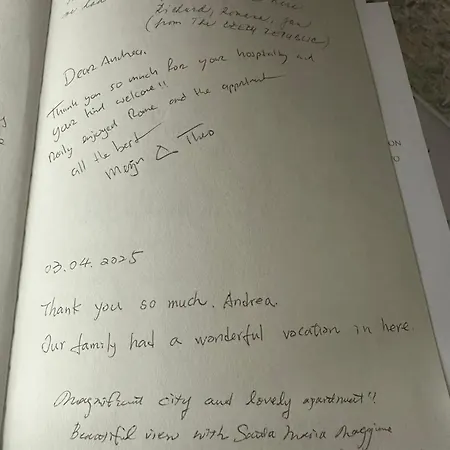 Richard, Zuzana, Jan
(from THE CZECH REPUBLIC)
Dear Andrea,
Thank you so much for your hospitality and
your kind welcome!!
Really enjoyed Rome and the appartment
all the best
Theo
03.04.2025
Thank you so much, Andrea.
Our family had a wonderful vocation in here.
Magnificent city and lovely apartment!!
Beautiful view with Santa Maria Maggiore
ON